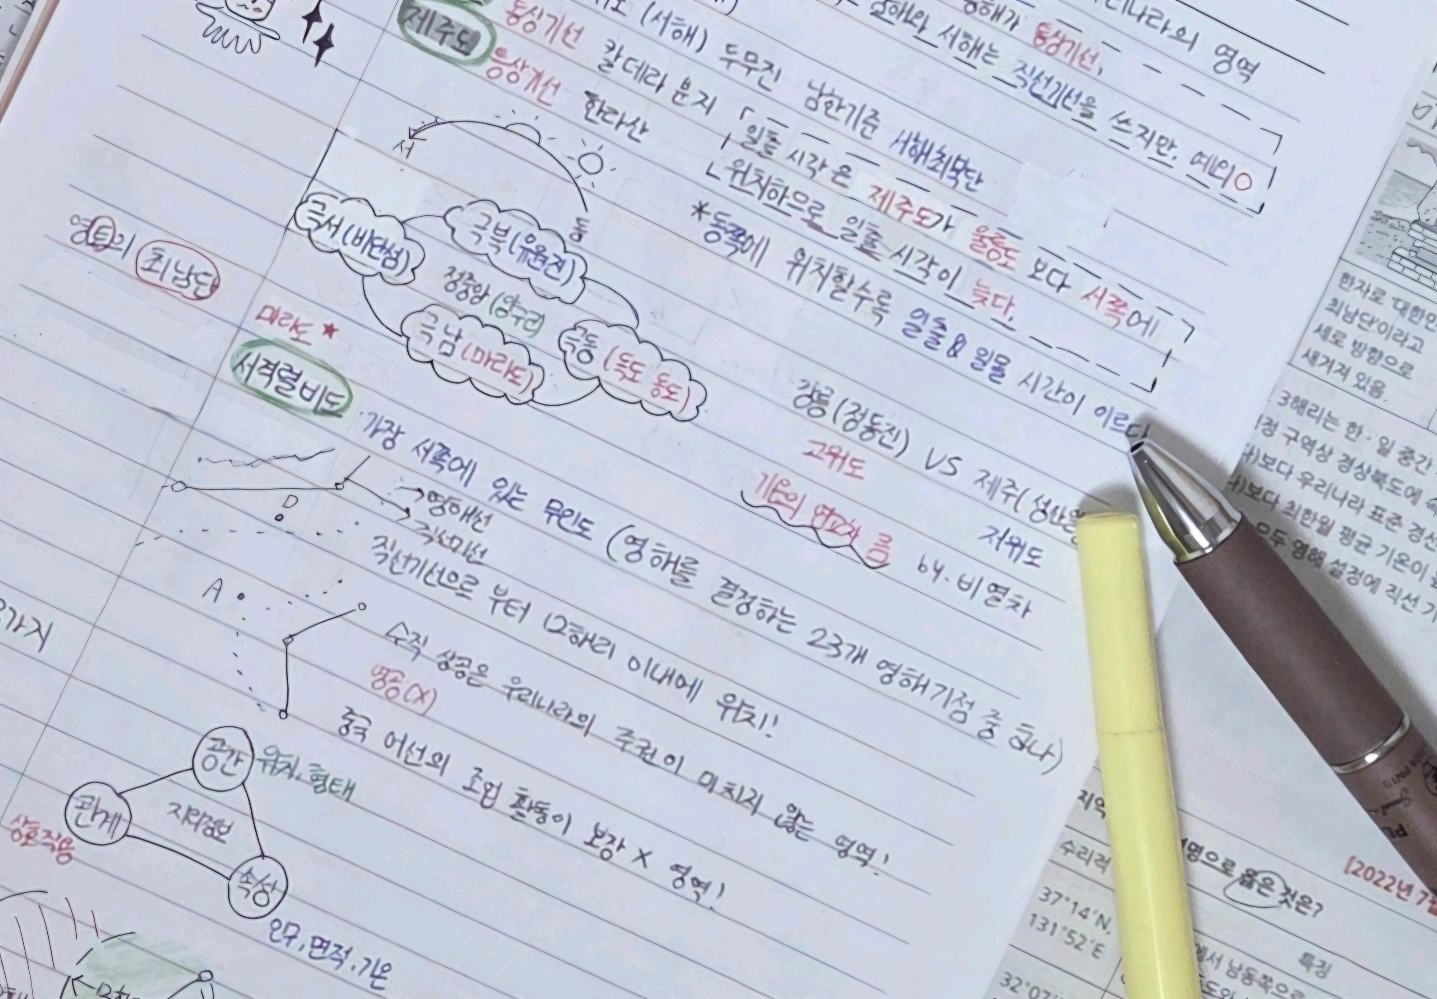 우리나라의 영역
동해가 통상기선,
서해는 직선기선을 쓰지만, 예외O
(서해) 두무진 남한기준 서해최북단
제주도
칼데라 분지
한라산
「일출 시각은 제주도가 울릉도 보다 서쪽에
위치하므로 일출 시각이 늦다.
*동쪽에 위치할수록 일출 & 일몰 시간이 이르다
서
동
극서 (비단섬)
극북 (유원진)
정중앙 (양구)
극남 (마라도)
극동 (독도 동도)
영토의 최남단
마라도 ★
강릉 (정동진) VS 제주(성산
고위도
저위도
기온의 연교차 름
by. 비열차
서격렬비도
가장 서쪽에 있는 무인도 (영해를 결정하는 23개 영해기점 중 하나)
→영해선
→직선기선
직선기선으로 부터 12해리 이내에 위치!
D
A
수직 상공은 우리나라의 주권이 미치지 않는 영역!
영공(X)
중국 어선의 조업 활동이 보장 X 영역!
공간
위치, 형태
관계
지리정보
상호작용
속성
인구, 면적, 기온
가지
한자로 '대한민
최남단'이라고
세로 방향으로
새겨져 있음.
3해리는 한·일 중간
정 구역상 경상북도에 속
)보다 우리나라 표준 경선
)보다 최한월 평균 기온이
모두 영해 설정에 직선 기
[2022년 7월
명으로 옳은 것은?
지역
수리적
특징
37°14′N,
131°52′E
에서 남동쪽으로
32°07′